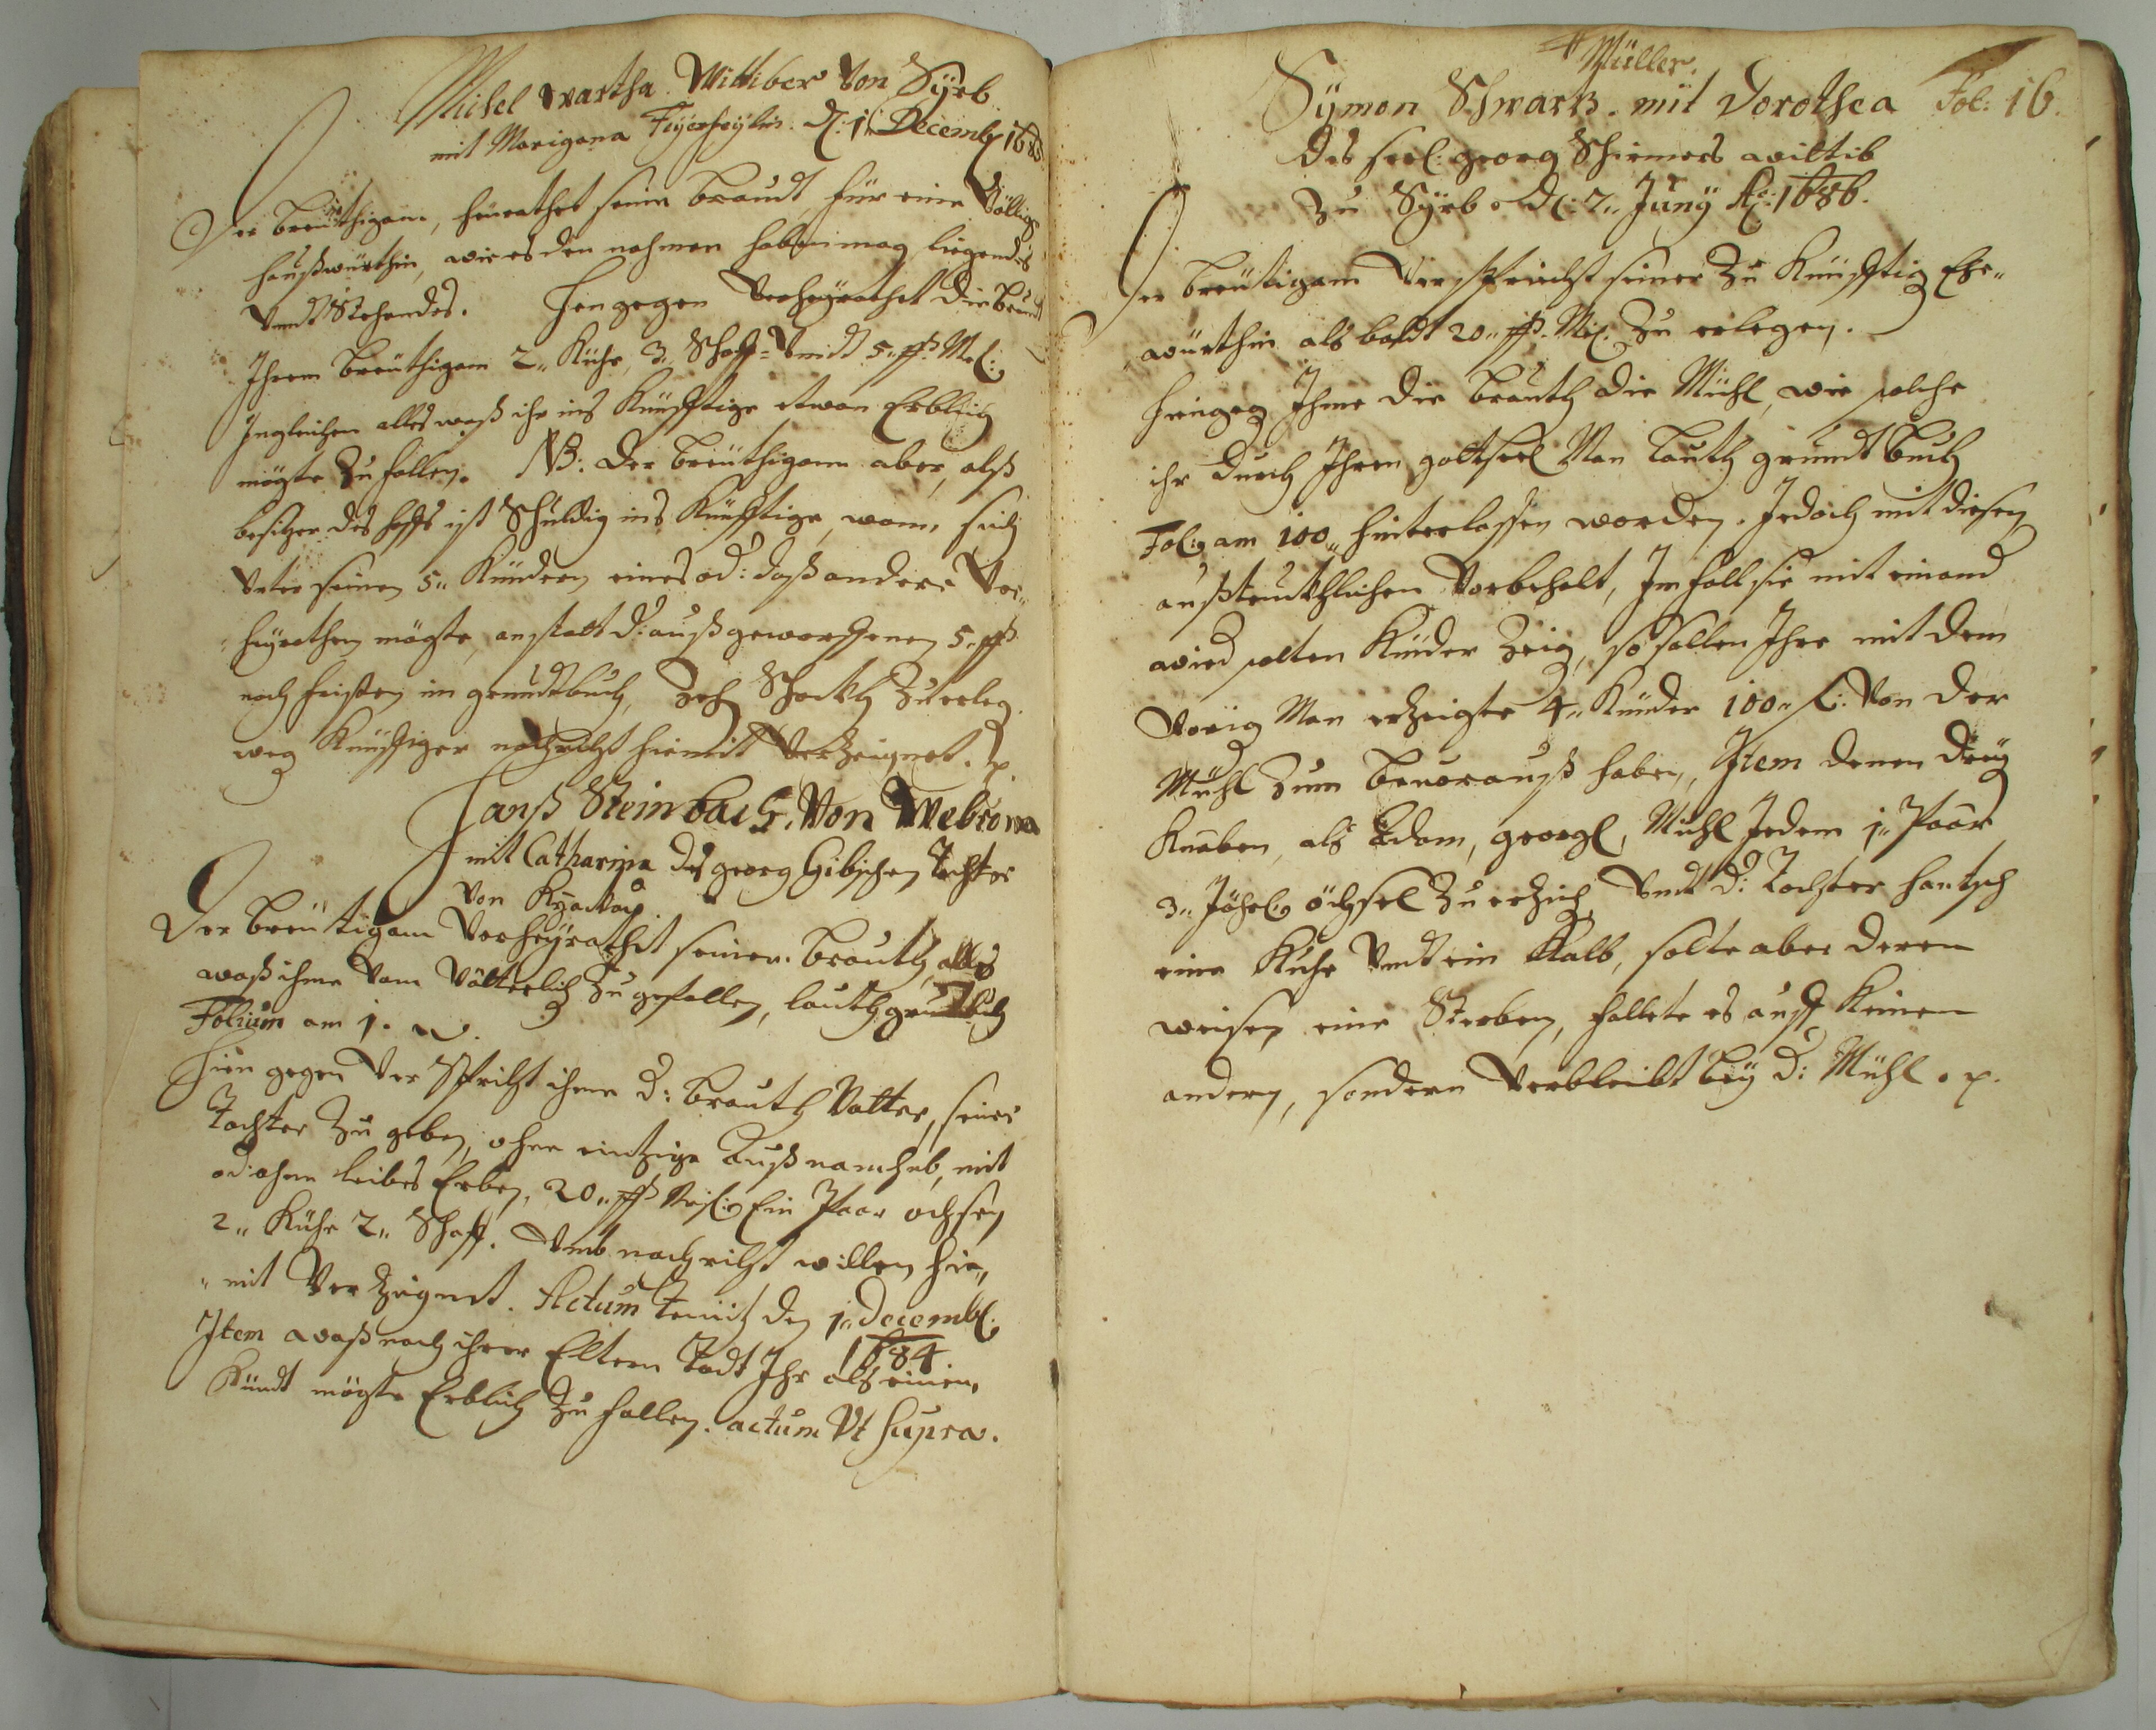 Michel Wartha Wittiber von Syrb
mit Marigana d. 1. Decemb: 168
Der Breüthigam, heürathet seine Braudt für eine Völlige
haußwürthin, wie es den nahmen haben mag ligendes
Vndt Stehendes. Hengegen Verheÿrathet die Braudt
Ihrem Breüthigam 2„ Kühe, 3„ Schaff= Vndt 5„ ßß Ms:
Ingleichen alles waß ihr ins Künfftige etwan Erblich
mögte Zu fallen. NB: Der Breüthigam aber, alß
besitzer des hoffs ist Schuldig ins Künfftige, wann, sich
Vnter seinen 5„ Kündern eines od: daß andere Ver„
heÿrathen mögte, anstatt d: außgeworffenen 5„ ßß
nach fristen im grundtbuch, Zehn Schockh Zu erleg.
weg Künfftiger nachricht hiemit Verzeignet. p.
Hanß Steinbach, Von Webrowa
mit Catharina des georg Gibischen Tochter
Von
Der Breütigam Verheÿrathet seiner Brauth alles
waß ihme Vom Vätterlich Zu gefallen, lauth grundtbuch
Folium am 1.
Hien gegen Ver Spricht ihme d: Brauth Vatter, seiner
Tochter Zu geben, ohne eintzige Außnamb, mit
od: ohne leibes Erben, 20„ ßß Mß: Ein Paar ochsen
2„ Kühe 2„ Schaff. Vmb nachricht willen hie„
„mit Ver Zeignet. Actum den 1„ Decemb:
1684.
Item waß nach ihrer Eltern Todt Ihr alß einen
Kündt mögte Erblich Zu fallen. actum Vt supra.
Müller.
Sÿmon Schwartz. mit Dorothea Fol: 16.
des seel: georg Schirmers wittib
Zu Sÿrb. d: 7„ Junÿ Ao: 1686.
Der Breütigam Verspricht seiner Zu Künfftig Ehe„
würthin als baldt 20„ ßß. Mß: Zu erlegen.
Hengeg Ihme die Brauth die Mühl, wie solche
ihr durch Ihren gottseel Man lauth grundtbuch
Fol: am 100„ hinterlassen worden. Jedoch mit diesen
außtrukhlichen Vorbehalt, Im fall sie mit einand
wird solten Künder Zeig, so sollen Ihre mit dem
Vorig Man erzeigte 4„ Künder 100„ f: Von der
Mühl Zum Bevorauß haben, Item denen dreÿ
Knaben, als Adam, georgl, Michl Jedem 1„ Paar
3„ Jährl: öchsel Zu erzich, Vndt d: Tochter
eine Kuhe Vndt ein Kalb, solte aber deren
weisen eine Sterben, fallete es auff Keinen
andern, sondern Verbleibt beÿ d: Mühl. p.